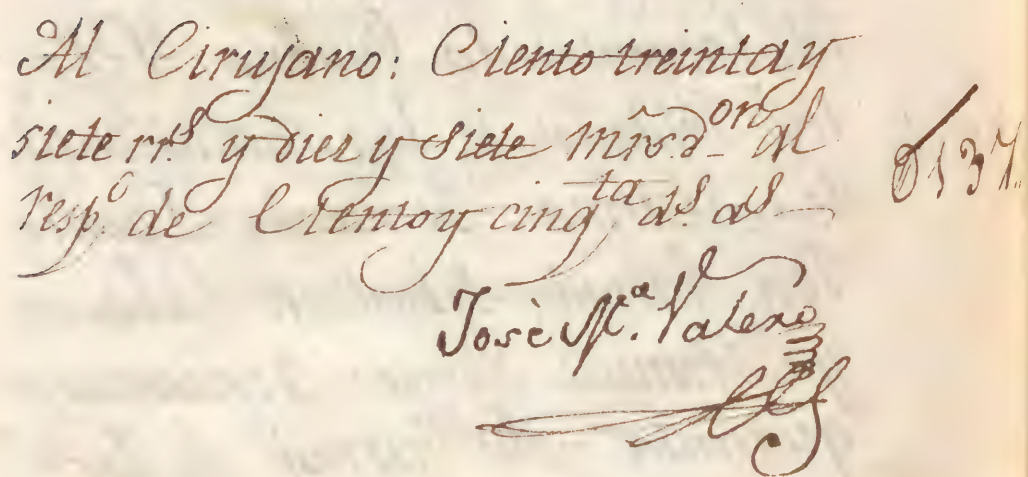 Al Cirujano: Ciento treinta y
siete rr.s y diez y siete mrs. von al
resp.o de Ciento y cinq.ta d.s a.s
0137..
Josè M.a Valero